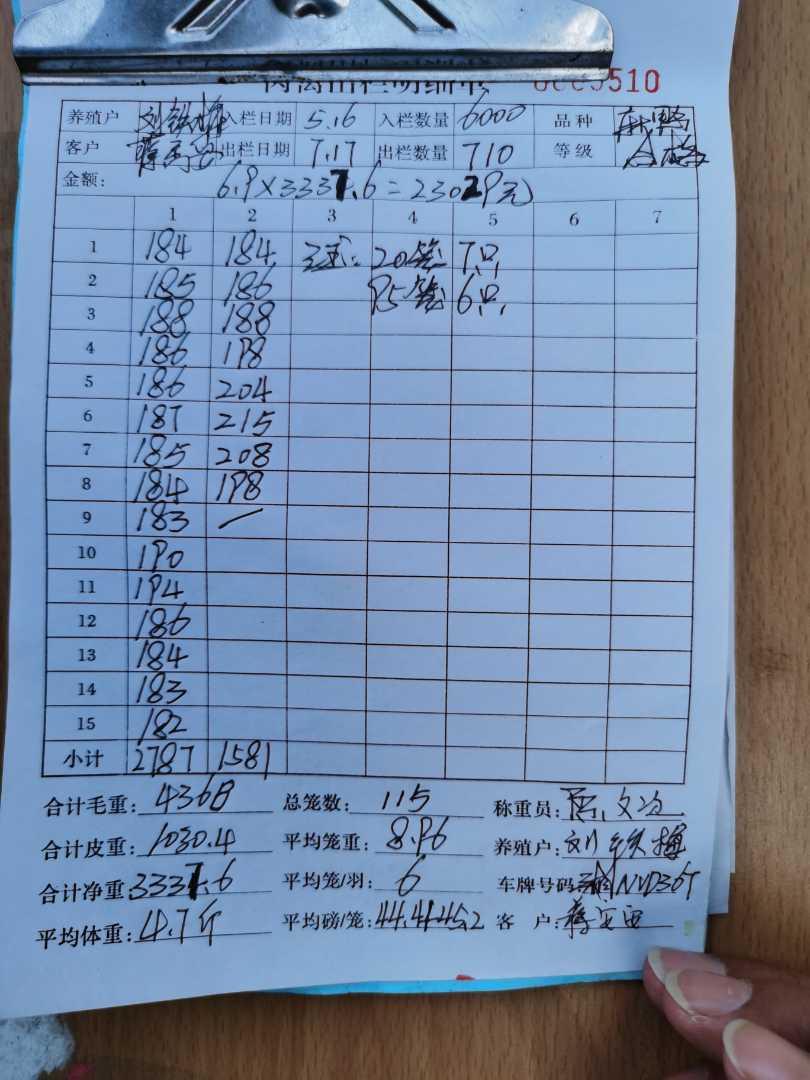 禽出栏明细 5510
养殖户 刘铁梅 入栏日期 5.16 入栏数量 6000 品种
客户 出栏日期 7.17 出栏数量 710 等级 合格
金额: 6.9×3337.6=23029元
1 2 3 4 5 6 7
1 184 184 20笼 7只
2 185 186 95笼 6只
3 188 188
4 186 198
5 186 204
6 187 215
7 185 208
8 184 198
9 183 /
10 190
11 194
12 186
13 184
14 183
15 182
小计 2787 1581
合计毛重: 4368 总笼数: 115 称重员:
合计皮重: 1030.4 平均笼重: 8.96 养殖户: 刘铁梅
合计净重 3337.6 平均笼/羽: 6 车牌号码
平均体重: 4.7斤 平均磅/笼: 客户: